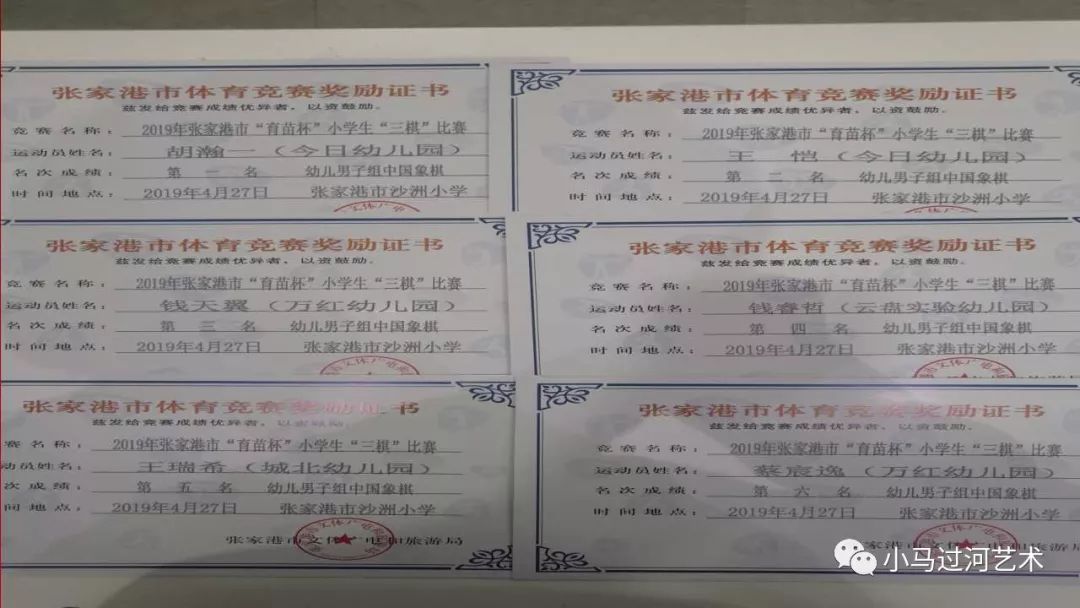 张家港市体育竞赛奖励证书
兹发给竞赛成绩优异者，以资鼓励。
竞赛名称：2019年张家港市“育苗杯”小学生“三棋”比赛
运动员姓名：胡瀚一（今日幼儿园）
名次成绩：第一名 幼儿男子组中国象棋
时间地点：2019年4月27日 张家港市沙洲小学
张家港市体育竞赛奖励证书
兹发给竞赛成绩优异者，以资鼓励。
竞赛名称：2019年张家港市“育苗杯”小学生“三棋”比赛
运动员姓名：王恺（今日幼儿园）
名次成绩：第二名 幼儿男子组中国象棋
时间地点：2019年4月27日 张家港市沙洲小学
张家港市体育竞赛奖励证书
兹发给竞赛成绩优异者，以资鼓励。
竞赛名称：2019年张家港市“育苗杯”小学生“三棋”比赛
运动员姓名：钱天翼（万红幼儿园）
名次成绩：第三名 幼儿男子组中国象棋
时间地点：2019年4月27日 张家港市沙洲小学
张家港市体育竞赛奖励证书
兹发给竞赛成绩优异者，以资鼓励。
竞赛名称：2019年张家港市“育苗杯”小学生“三棋”比赛
运动员姓名：钱睿哲（云盘实验幼儿园）
名次成绩：第四名 幼儿男子组中国象棋
时间地点：2019年4月27日 张家港市沙洲小学
张家港市体育竞赛奖励证书
兹发给竞赛成绩优异者，以资鼓励。
赛名称：2019年张家港市“育苗杯”小学生“三棋”比赛
动员姓名：王瑞希（城北幼儿园）
次成绩：第五名 幼儿男子组中国象棋
间地点：2019年4月27日 张家港市沙洲小学
张家港市文体广电和旅游局
张家港市体育竞赛奖励证书
兹发给竞赛成绩优异者，以资鼓励。
竞赛名称：2019年张家港市“育苗杯”小学生“三棋”比赛
运动员姓名：蔡宸逸（万红幼儿园）
名次成绩：第六名 幼儿男子组中国象棋
时间地点：2019年4月27日 张家港市沙洲小学
家港市文体广电和旅游局
小马过河艺术